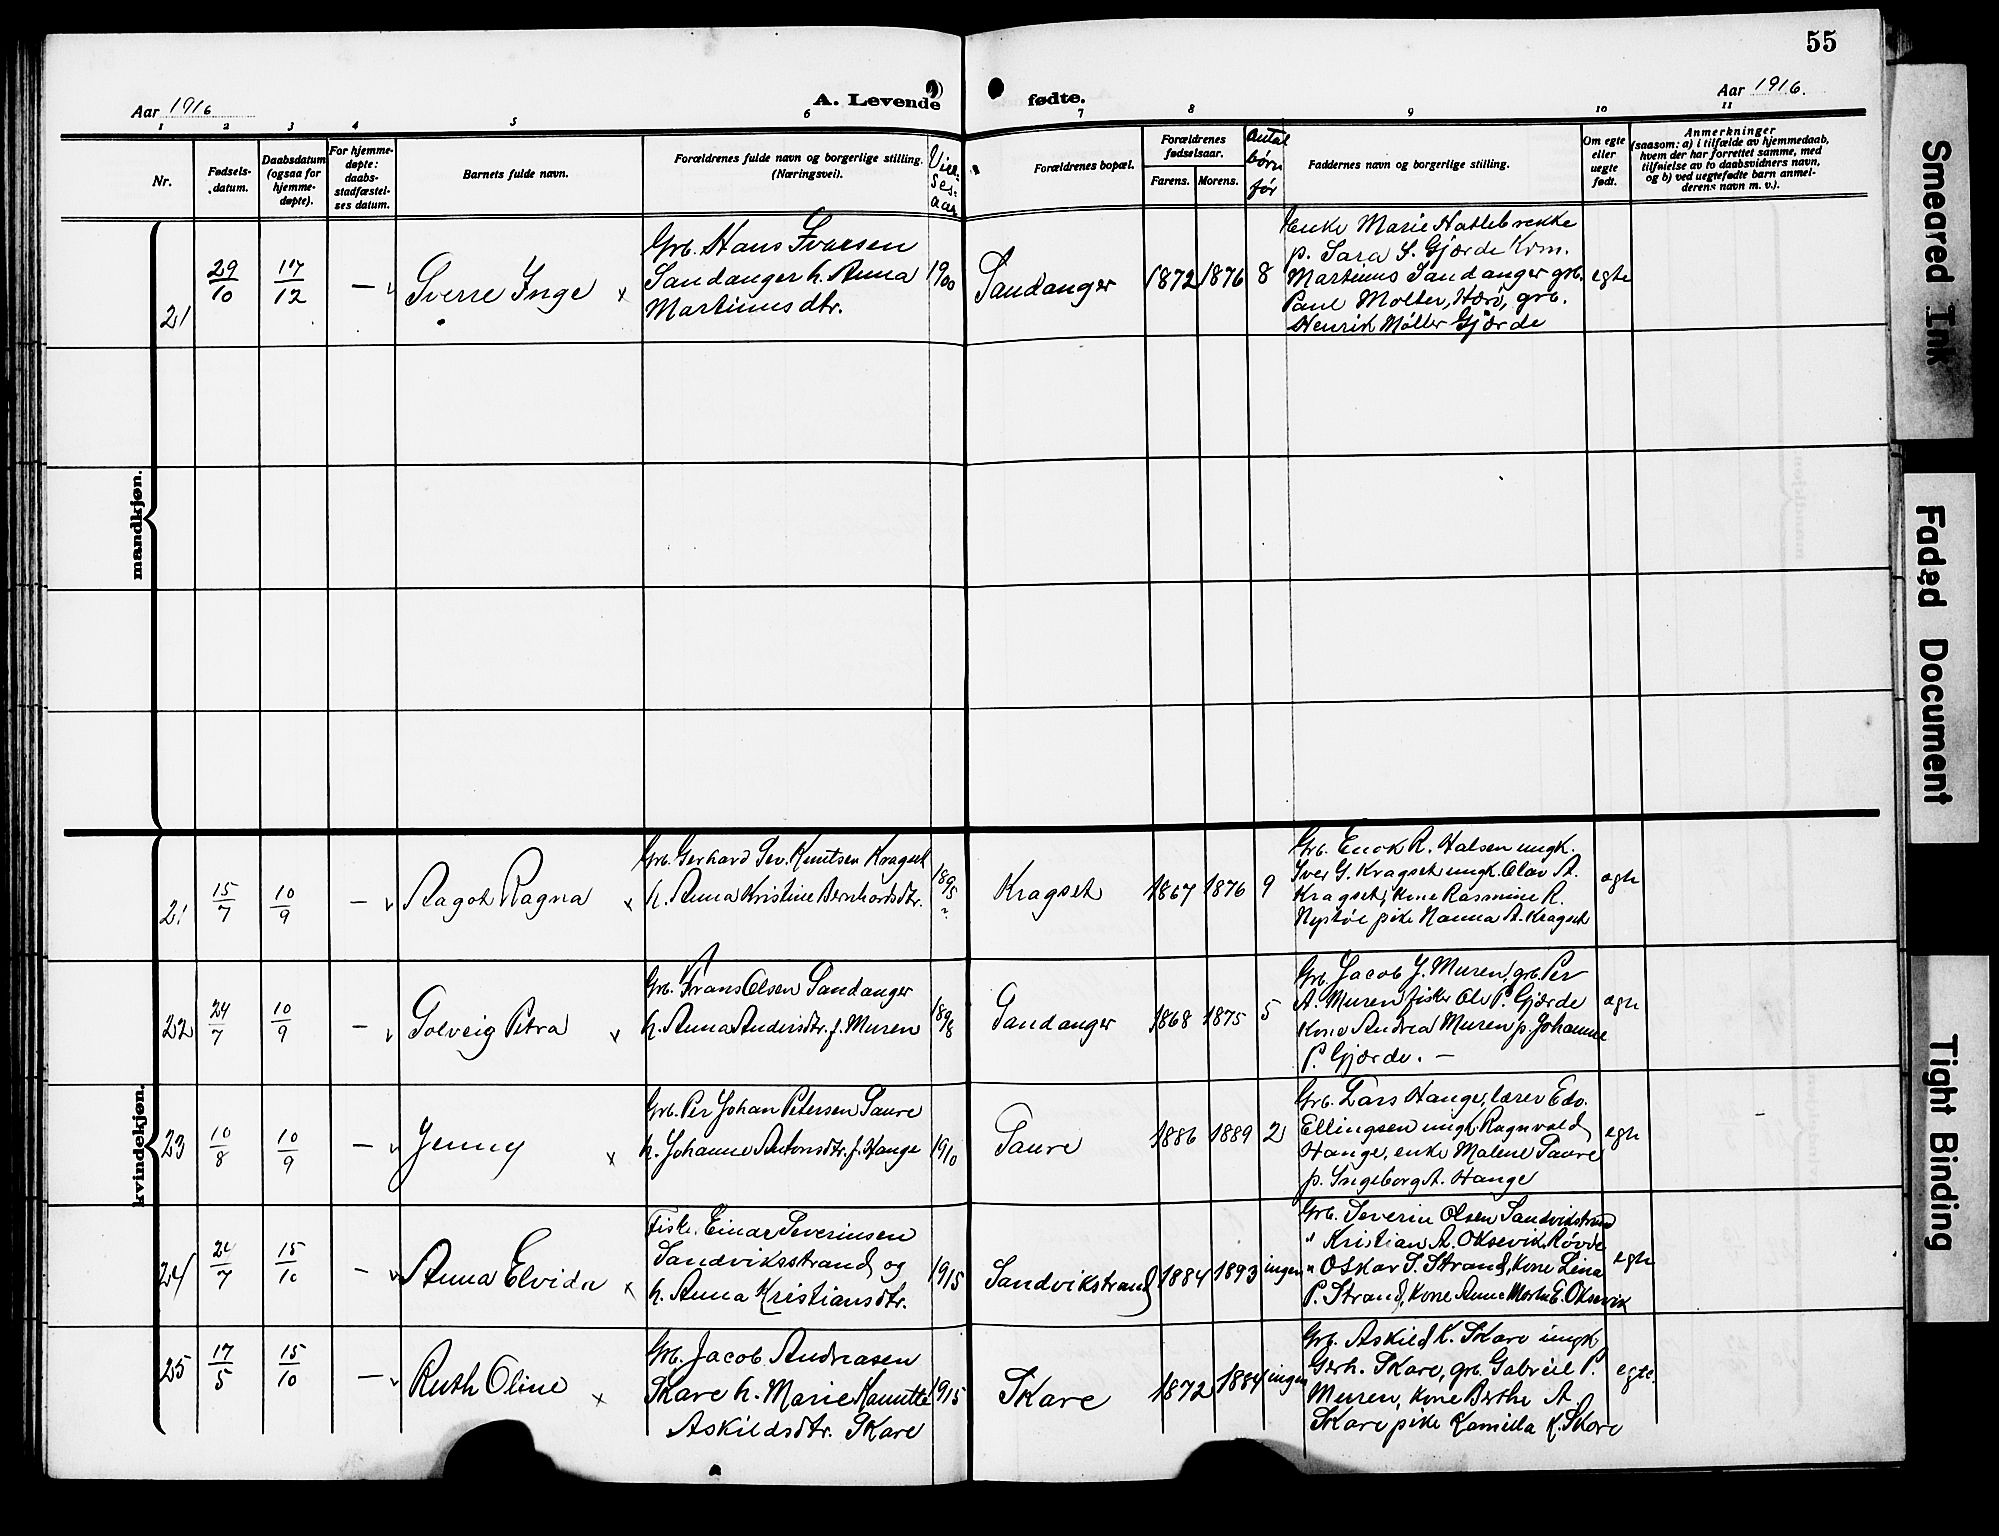 55
Aar 1916
A. Levende fødte.
Aar 1916.
1 2 3 4 5 6 7 8 9 10 11
Nr.
Fødsels-
datum.
Daabsdatum
(ogsaa for
hjemme-
døpte).
For hjemme-
døpte:
daabs-
stadfæstel-
ses datum.
Barnets fulde navn.
Forældrenes fulde navn og borgerlige stilling.
(Næringsvei).
Viel-
ses-
aar
Forældrenes bopæl.
Forældrenes
fødselsaar.
Farens. Morens.
Antal
børn
før
Faddernes navn og borgerlige stilling.
Om egte
eller
uegte
født.
Anmerkninger
(saasom: a) i tilfælde av hjemmedaab,
hvem der har forrettet samme, med
tilføielse av to daabsvidners navn,
og b) ved uegtefødte barn anmel-
derens navn m. v.).
mandkjøn.
21 29/10 17/12 — Sverre Inge
Grb. Hans Ivarsen
Sandanger h. Anna
Martinusdtr.
1900 Sandanger 1872 1876 8
Enke Marie Hatlebrekke
p. Sara S. Gjærde Kvm.
Martinus Sandanger grb.
Paul Moltu, Herø, grb.
Henrik Møller Gjærde
egte
kvindekjøn.
21 15/7 10/9 — Aagot Ragna
Grb. Gerhard Sev. Knutsen Kragset
h. Anna Kristine Bernhardsdtr.
1895 ? Kragset 1867 1876 9
Grb. Enok R. Halsen ungk.
Iver G. Kragset ungk. Olav A.
Kragset, Kone Rasmine R.
Nystøl pike Nanna A. Kragset
egte
22 24/7 10/9 — Solveig Petra
Grb. Frans Olsen Sandanger
h. Anna Andersdtr. f. Muren
1898 Sandanger 1868 1875 5
Grb. Jacob J. Muren, grb. Per
A. Muren fisker Ole P. Gjærde
Kone Andrea Muren p. Johanne
P. Gjærde. —
egte
23 10/8 10/9 — Jenny
Grb. Per Johan Petersen Saure
h. Johanne Antonsdtr. f. Hauge
1910 Saure 1886 1889 2
Grb. Lars Hauge, lærer Edv.
Ellingsen ungk. Ragnvald
Hauge, enke Malene Saure
p. Ingeborg A. Hauge
egte
24 24/7 15/10 — Anna Elvida
Fisk. Einar Severinsen
Sandviksstrand og
h. Anna Kristiansdtr.
1915 Sandvikstrand 1884 1893 ingen
Grb. Severin Olsen Sandvikstrand
" Kristian A. Oksevik, Røvde
" Oskar S. Strand, Kone Lina
P. Strand, Kone Anne Marta E. Oksevik
egte
25 17/5 15/10 — Ruth Oline
Grb. Jacob Andreasen
Skare h. Marie Kanutte
Askildsdtr. Skare
1915 Skare 1872 1884 ingen
Grb. Askild K. Skare ungk.
Gerh. Skare, grb. Gabriel P.
Muren, Kone Berthe A.
Skare pike Kamilla K. Skare
egte.
Smeared Ink
Faded Document
Tight Binding